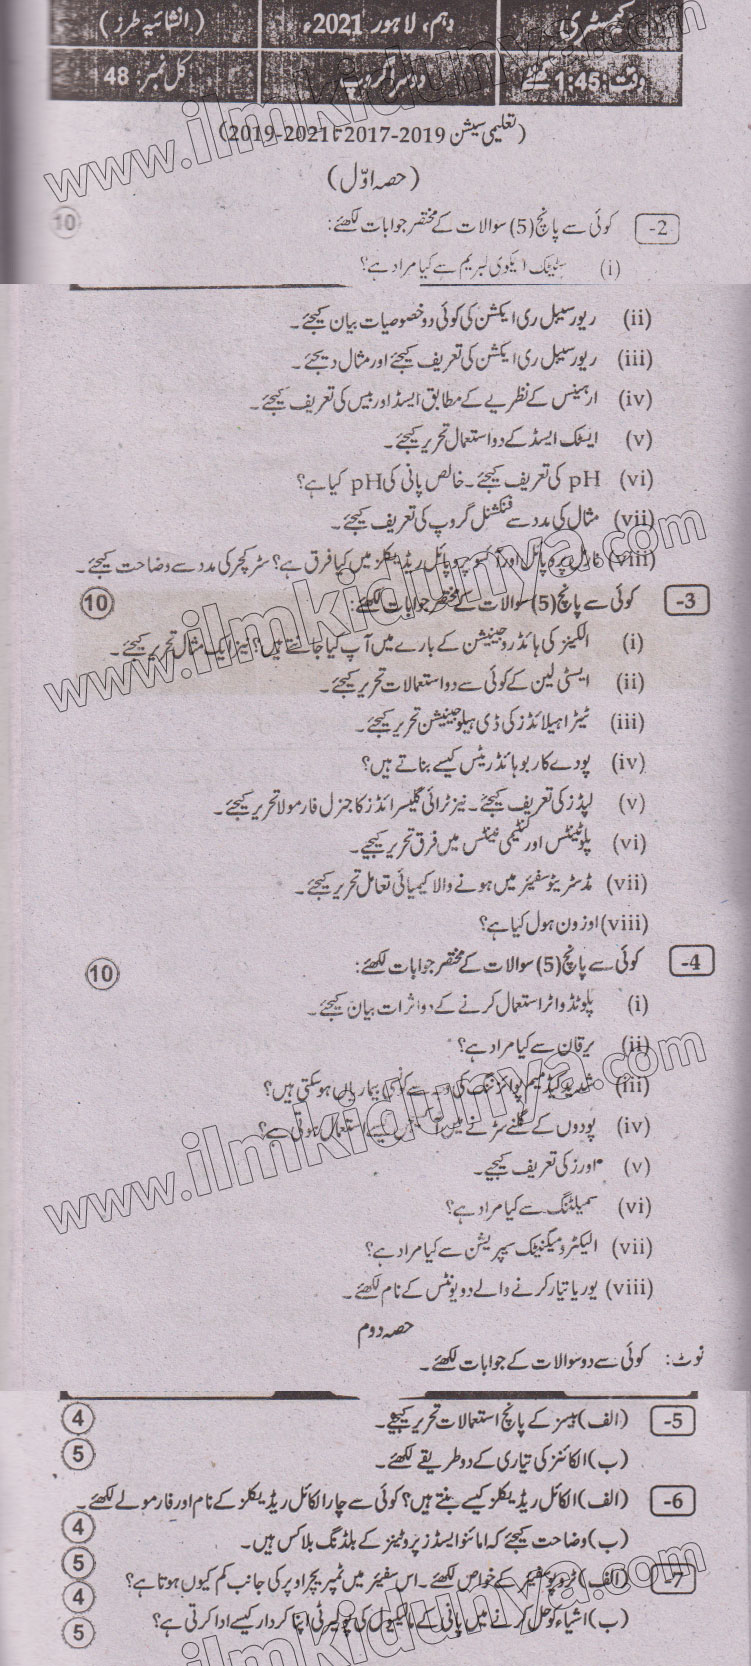 کیمسٹری
دہم، لاہور 2021ء
(انشائیہ طرز)
وقت: 1:45 گھنٹے
دوسرا گروپ
کل نمبر: 48
(تعلیمی سیشن 2019-2017 تا 2021-2019)
(حصہ اوّل)
2- کوئی سے پانچ (5) سوالات کے مختصر جوابات لکھئے: 10
(i) سٹیٹک ایکوی لبریم سے کیا مراد ہے؟
(ii) ریورسیبل ری ایکشن کی کوئی دو خصوصیات بیان کیجئے۔
(iii) ریورسیبل ری ایکشن کی تعریف کیجئے اور مثال دیجئے۔
(iv) ارہینس کے نظریے کے مطابق ایسڈ اور بیس کی تعریف کیجئے۔
(v) ایسٹک ایسڈ کے دو استعمال تحریر کیجئے۔
(vi) pH کی تعریف کیجئے۔ خالص پانی کی pH کیا ہے؟
(vii) مثال کی مدد سے فنکشنل گروپ کی تعریف کیجئے۔
(viii) نارمل پروپائل اور آئسو پروپائل ریڈیکلز میں کیا فرق ہے؟ سٹرکچر کی مدد سے وضاحت کیجئے۔
3- کوئی سے پانچ (5) سوالات کے مختصر جوابات لکھئے: 10
(i) الکینز کی ہائڈروجینیشن کے بارے میں آپ کیا جانتے ہیں؟ نیز ایک مثال تحریر کیجئے۔
(ii) ایسٹی لین کے کوئی سے دو استعمالات تحریر کیجئے۔
(iii) ٹیٹرا ہیلائڈز کی ڈی ہیلوجینیشن تحریر کیجئے۔
(iv) پودے کاربوہائڈریٹس کیسے بناتے ہیں؟
(v) لپڈز کی تعریف کیجئے۔ نیز ٹرائی گلیسرائڈز کا جنرل فارمولا تحریر کیجئے۔
(vi) پلوٹینٹس اور کنٹیمی نینٹس میں فرق تحریر کیجیے۔
(vii) مڈ سٹریٹوسفیئر میں ہونے والا کیمیائی تعامل تحریر کیجئے۔
(viii) اوزون ہول کیا ہے؟
4- کوئی سے پانچ (5) سوالات کے مختصر جوابات لکھئے: 10
(i) پلوٹڈ واٹر استعمال کرنے کے دو اثرات بیان کیجئے۔
(ii) یرقان سے کیا مراد ہے؟
(iii) شدید کیڈمیم پوائزننگ کی وجہ سے کونسی بیماریاں ہو سکتی ہیں؟
(iv) پودوں کے گلنے سڑنے میں آکسیجن کیسے استعمال ہوتی ہے؟
(v) اورز کی تعریف کیجیے۔
(vi) سمیلٹنگ سے کیا مراد ہے؟
(vii) الیکٹرومیگنیٹک سپریشن سے کیا مراد ہے؟
(viii) یوریا تیار کرنے والے دو یونٹس کے نام لکھئے۔
حصہ دوم
نوٹ: کوئی سے دو سوالات کے جوابات لکھئے۔
5- (الف) بیسز کے پانچ استعمالات تحریر کیجیے۔ 4
(ب) الکائنز کی تیاری کے دو طریقے لکھئے۔ 5
6- (الف) الکائل ریڈیکلز کیسے بنتے ہیں؟ کوئی سے چار الکائل ریڈیکلز کے نام اور فارمولے لکھئے۔ 4
(ب) وضاحت کیجئے کہ امائنو ایسڈز پروٹینز کے بلڈنگ بلاکس ہیں۔ 5
7- (الف) ٹروپوسفیئر کے خواص لکھئے۔ اس سفیئر میں ٹمپریچر اوپر کی جانب کم کیوں ہوتا ہے؟ 4
(ب) اشیاء کو حل کرنے میں پانی کے مالیکیول کی پولیرٹی اپنا کردار کیسے ادا کرتی ہے؟ 5
www.ilmkidunya.com
www.ilmkidunya.com
www.ilmkidunya.com
ilmkidunya.com